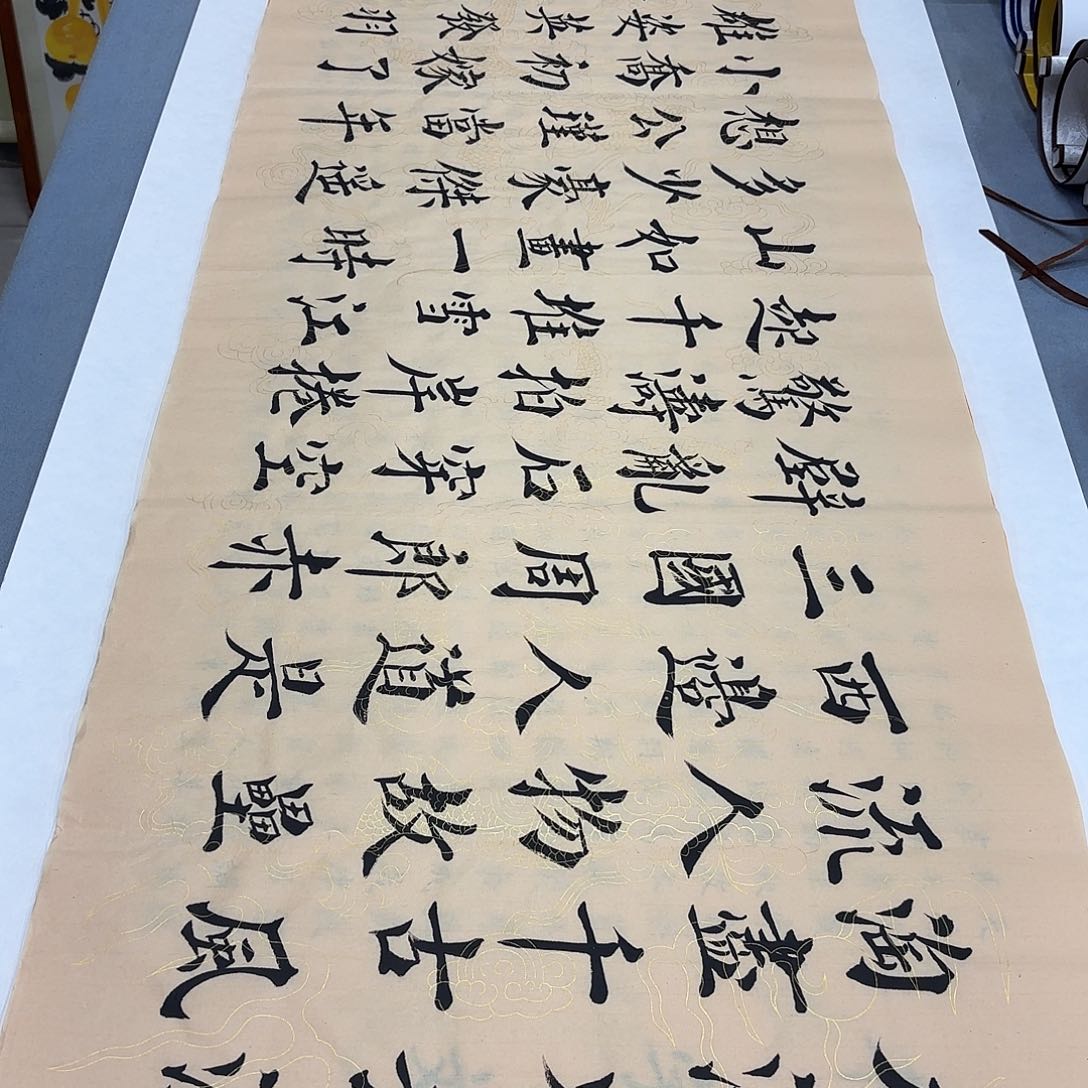 淘盡千古風
流人物故壘
西邊人道是
三國周郎赤
壁亂石穿空
驚濤拍岸捲
起千堆雪江
山如畫一時
多少豪傑遙
想公瑾當年
小喬初嫁了
雄姿英發羽